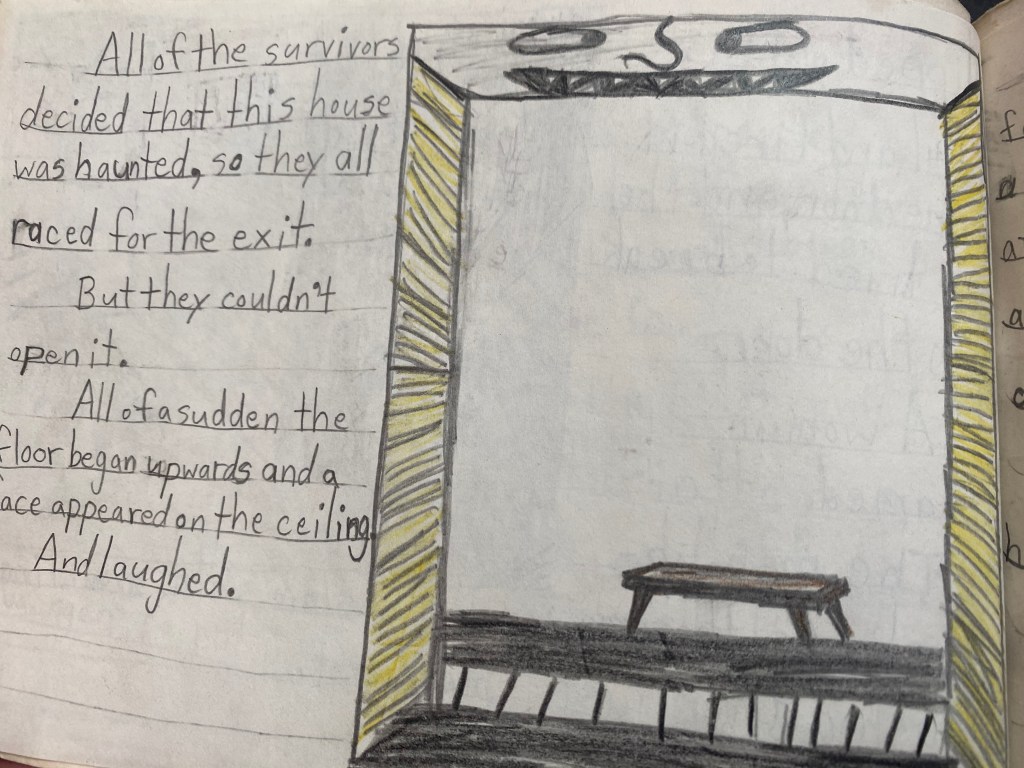 All of the survivors
decided that this house
was haunted, so they all
raced for the exit.
But they couldn't
open it.
All of a sudden the
floor began upwards and a
ace appeared on the ceiling
And laughed.